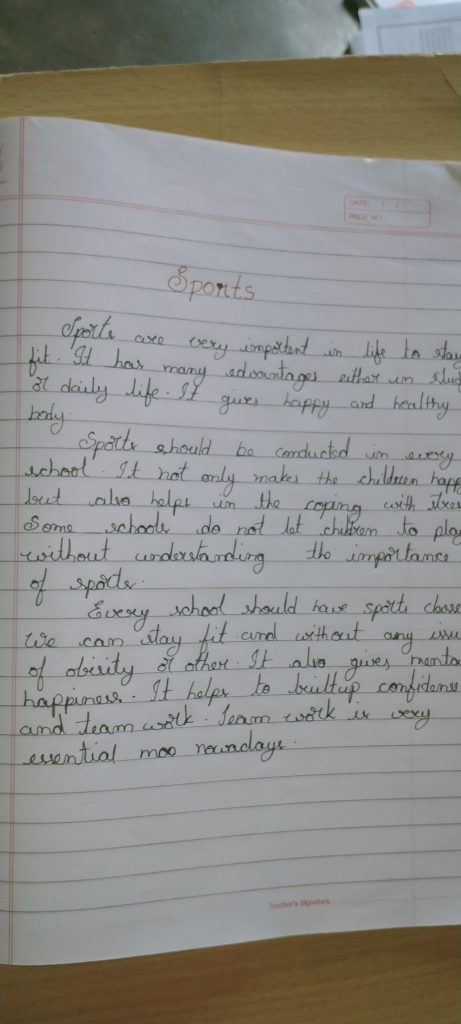 DATE: / /
PAGE NO.:
Sports
Sports are very important in life to stay
fit. It has many advantages either in
or daily life. It gives happy and healthy
body.
Sports should be conducted in every
school. It not only makes the children happ
but also helps in the coping with stres
Some schools do not let children to play
without understanding the importance
of sports.
Every school should have sports classe
We can stay fit and without any issue
of obisity or other. It also gives menta
happiness. It helps to builtup confidens
and team work. Team work is very
essential moo nowadays.
Teacher's Signature